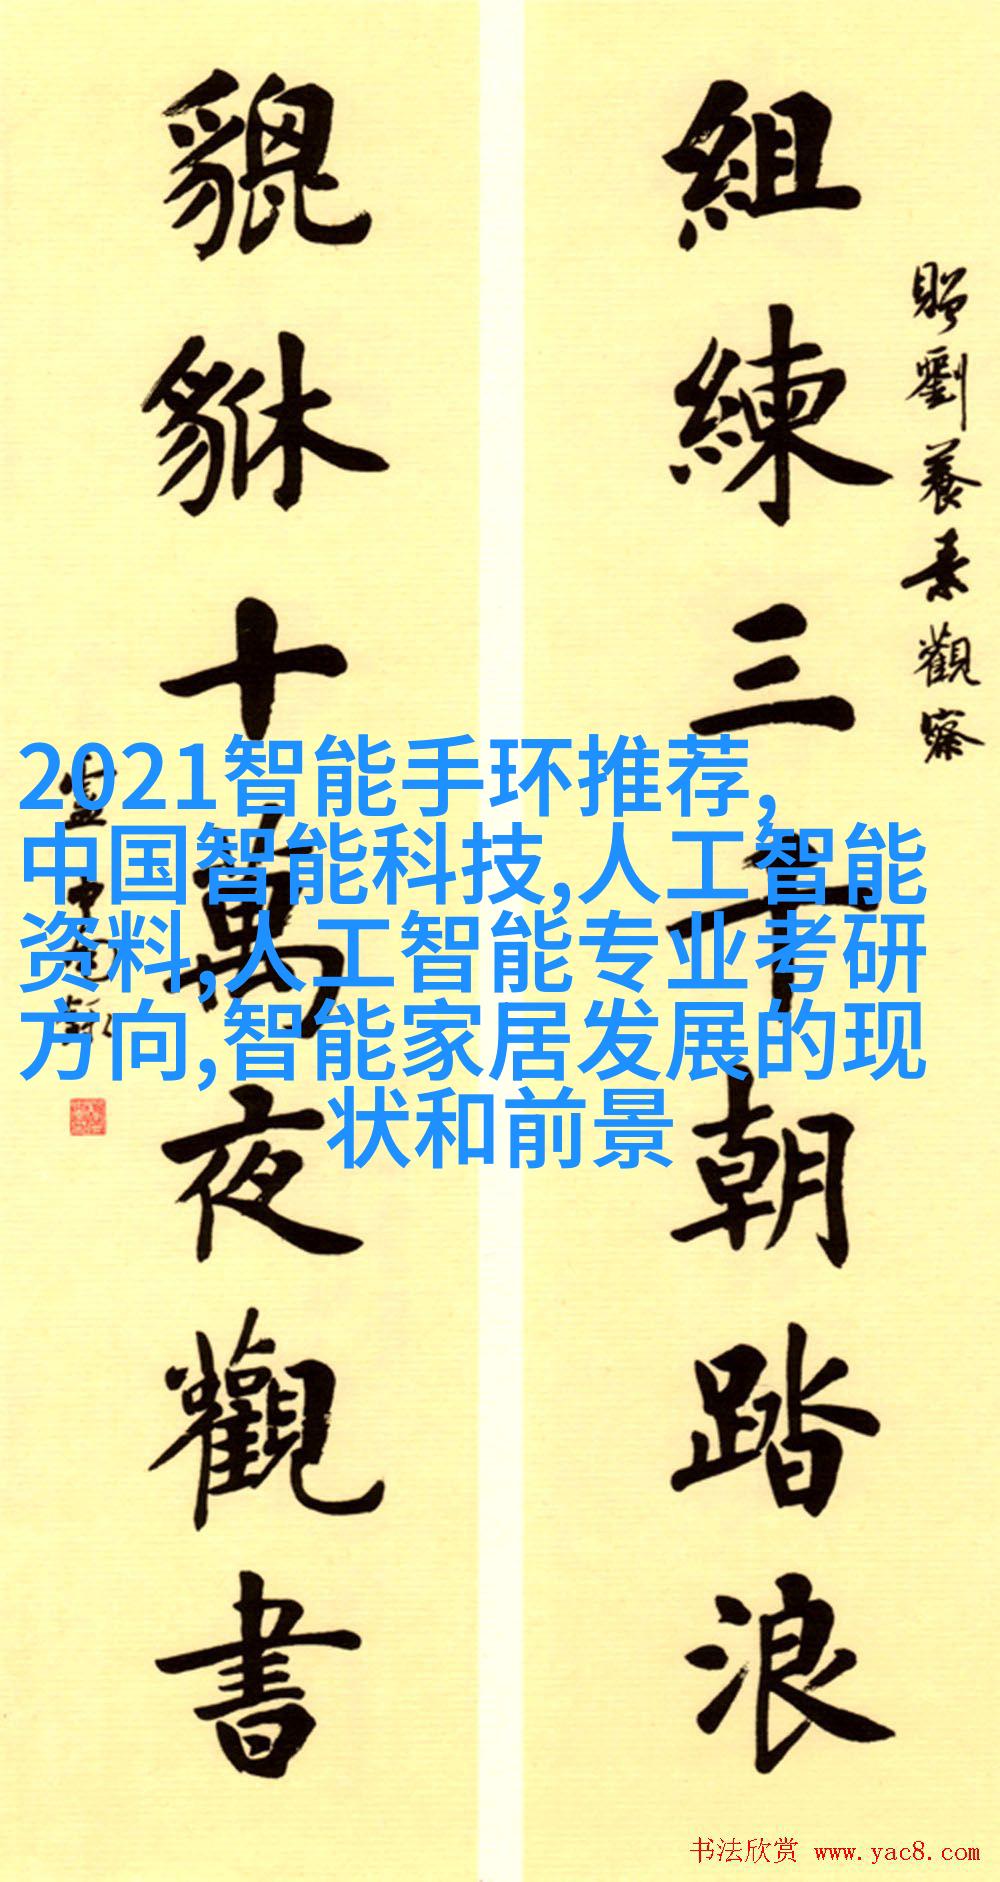 2021智能手环推荐,
中国智能科技,人工智能
资料,人工智能专业考研
方向,智能家居发展的现
状和前景
贈劉養素觀察
組練三千朝踏浪
貔貅十萬夜觀書
书法欣赏 www.yac8.com